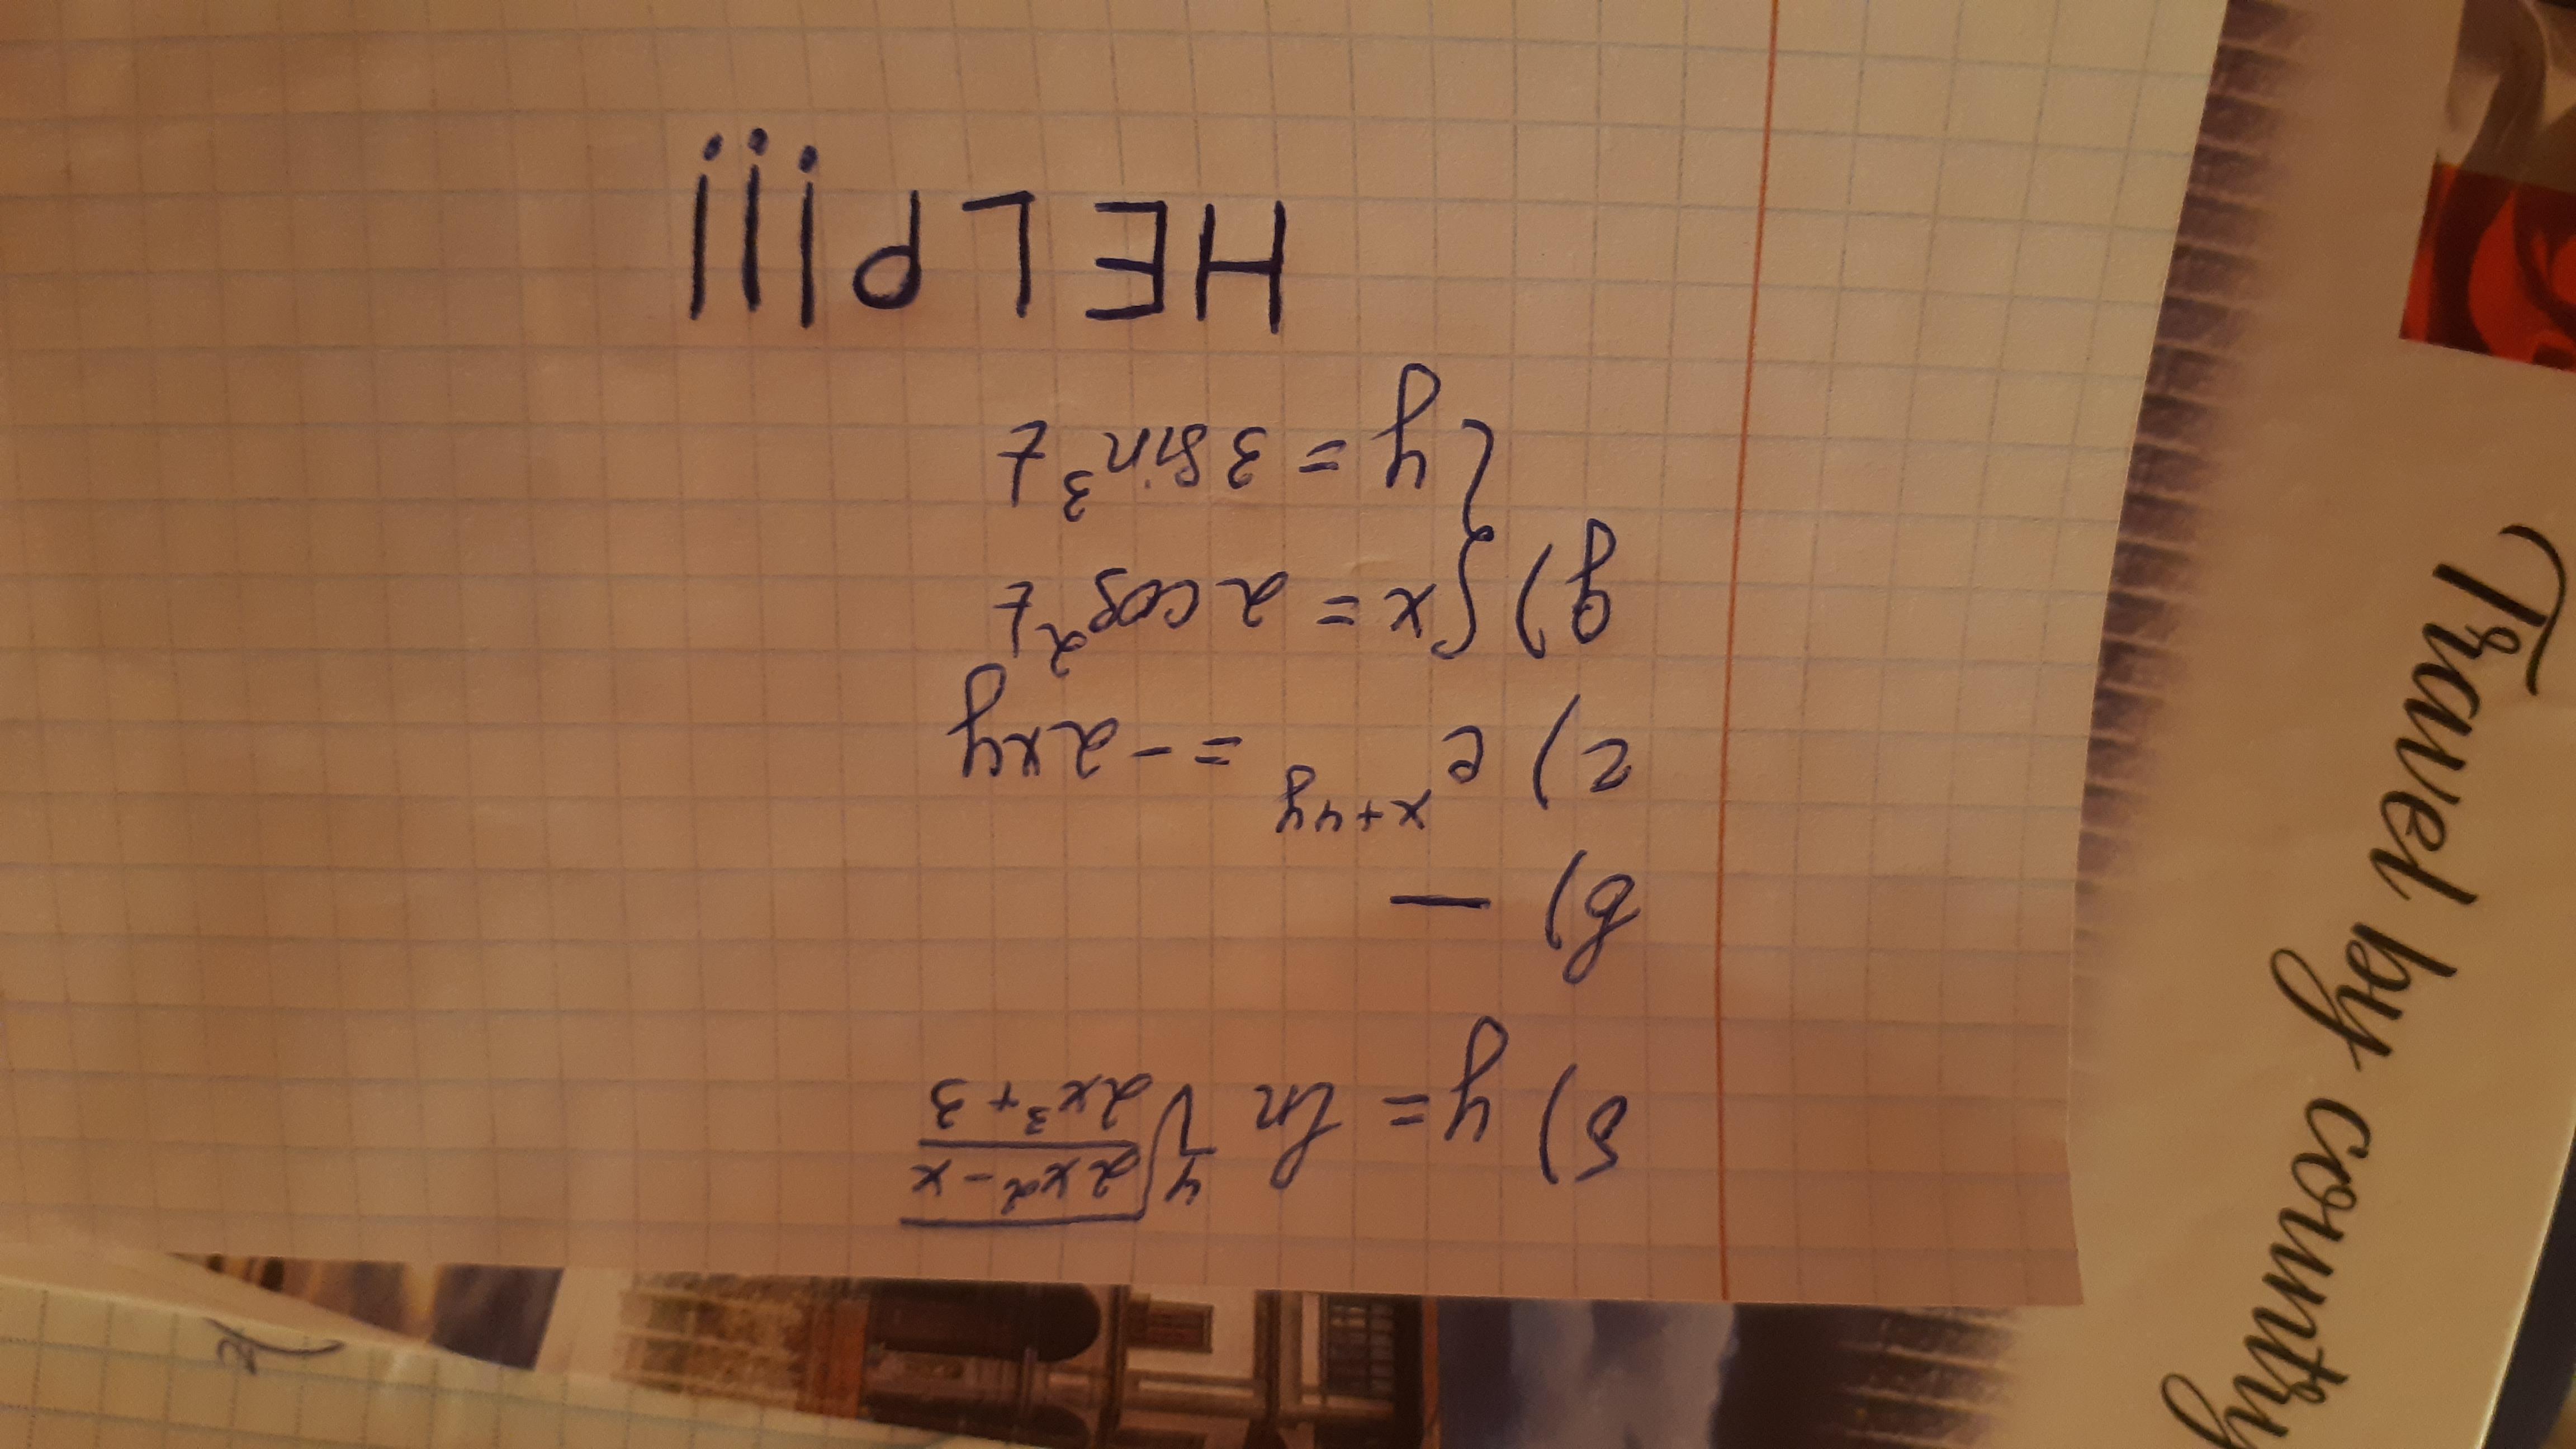 б) y = ln ⁴√((2x² - x)/(2x³ + 3))
в) —
г) e^(x+4y) = -2xy
д) { x = 2 cos² t
y = 3 sin³ t
HELP!!!
Travel by country